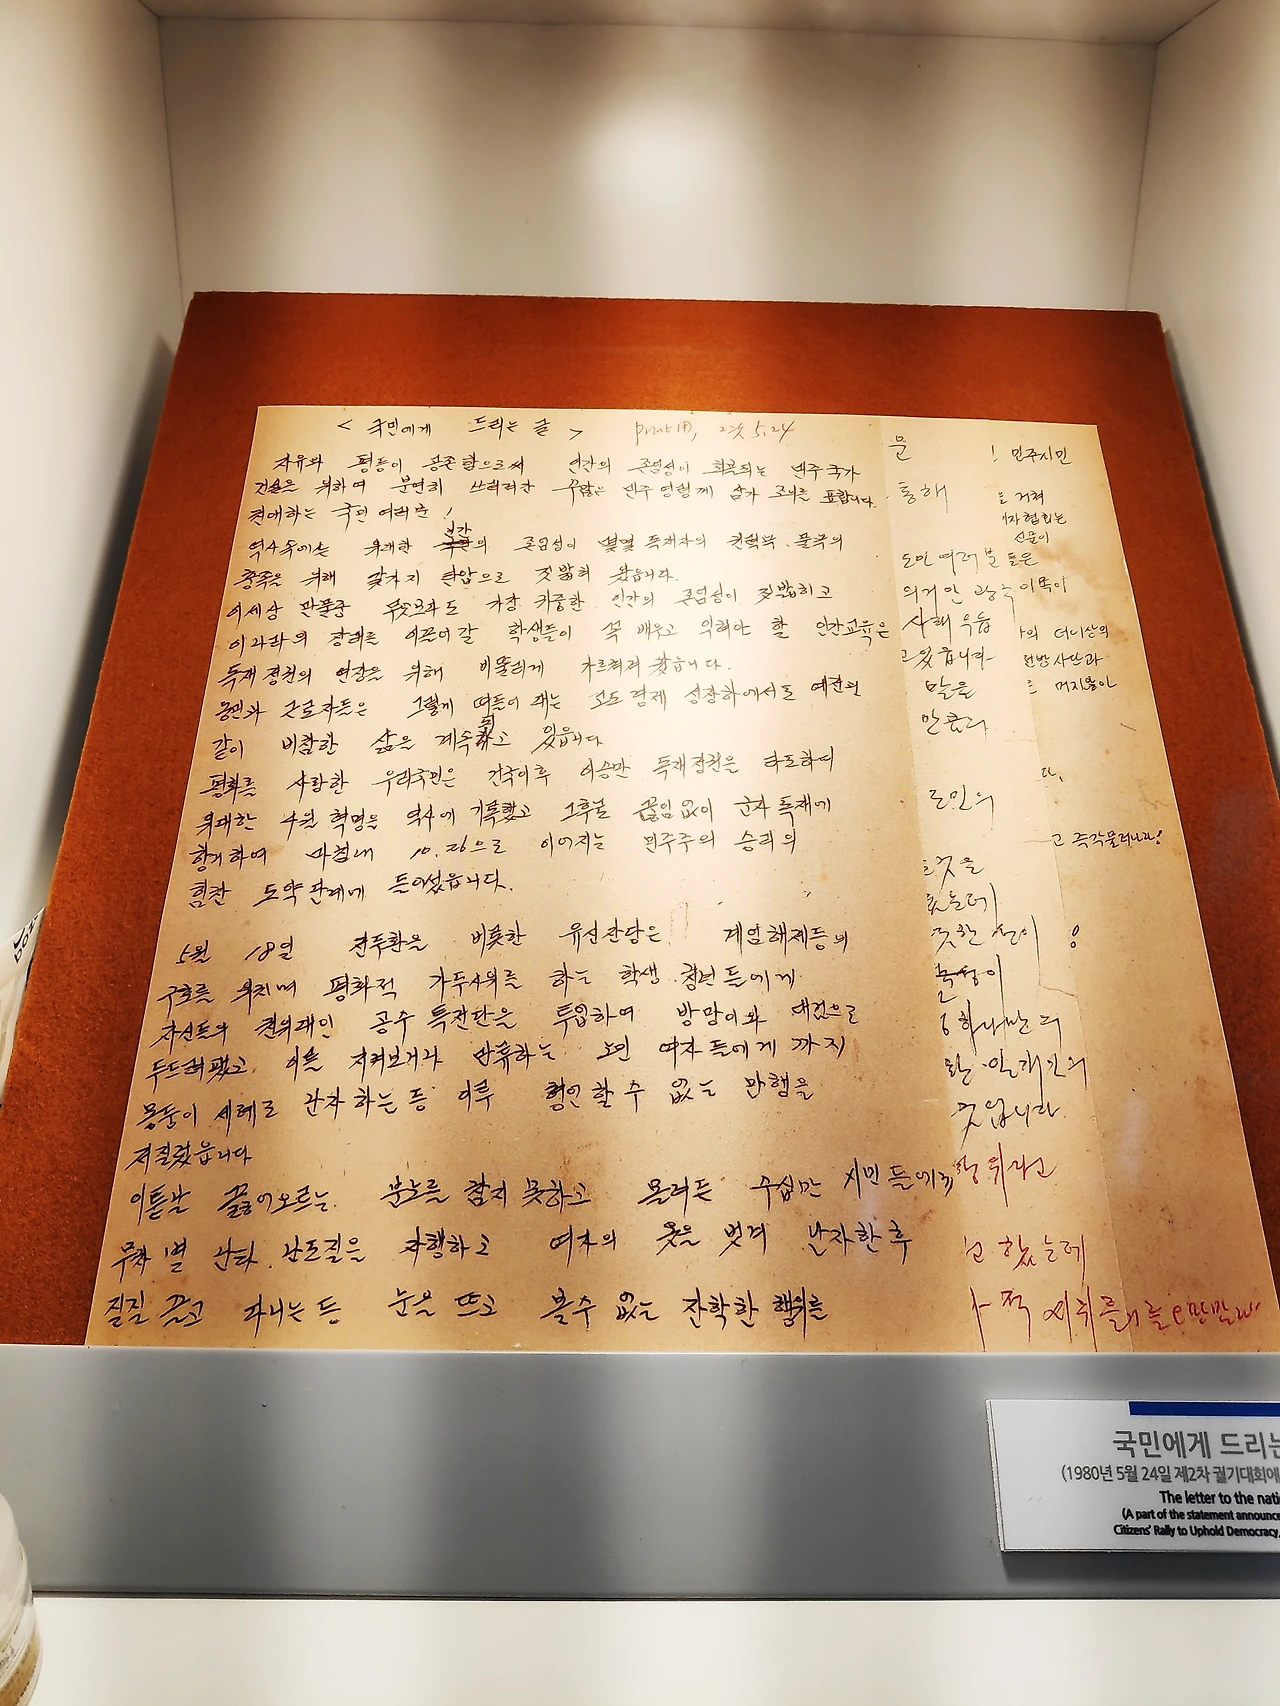 < 국민에게 드리는 글 >
print用, 2次 5.24
자유와 평등이 공존함으로써 인간의 존엄성이 회복되는 민주국가
건설을 위하여 분연히 쓰러져간 수많은 민주영령께 삼가 조의를 표합니다.
친애하는 국민 여러분!
역사속에서는 위대한 인간의 존엄성이 몇몇 독재자의 권력부
충족을 위해 갖가지 탄압으로 짓밟혀 왔습니다.
이세상 만물중 무엇보다도 가장 귀중한 인간의 존엄성이 짓밟히고
이나라의 장래를 이끌어갈 학생들이 꼭 배우고 익혀야 할 인간교육은
독재정권의 연장을 위해 비뚤리게 가르쳐져 왔습니다.
농민과 근로자들은 그렇게 떠들어 대는 고도경제 성장하에서도 예전과
같이 비참한 삶을 계속하고 있읍니다
평화를 사랑한 우리국민은 건국이후 이승만 독재정권을 타도하여
위대한 4월 혁명을 역사에 기록했고 그후로 끊임없이 군사독재에
항거하여 마침내 10.26으로 이어지는 민주주의 승리의
힘찬 도약단계에 들어섰읍니다.
5월 18일 전두환을 비롯한 유신잔당은 계엄해제등의
구호를 외치며 평화적 가두시위를 하는 학생 청년들에게
자신들의 전위대인 공수특전단을 투입하여 방망이와 대검으로
두드려팼고 이를 지켜보거나 만류하는 노인 여자들에게 까지
몽둥이 세례로 난자 하는 등 이루 형언할수 없는 만행을
저질렀읍니다
이튿날 끓어오르는 분노를 참지 못하고 몰려든 수십만 시민들에게
무차별 난타 난도질을 자행하고 여자의 옷을 벗겨 난자한후
질질 끌고 다니는 등 눈을 뜨고 볼수 없는 잔학한 행위를
문
통해
도민 여러분
사해 유읍
고 있읍니다
말을
만큼다
로인의
것을
못한 선이
속성이
하나만의
한 일개인의
것입니다
행위라고
고 했는데
! 민주시민
를 거쳐
기자협회는
신문이
들은
이 똑이
의 더이상의
전방사단과
르 머지않아
다.
고 즉각물러나라!
국민에게 드리는
(1980년 5월 24일 제2차 궐기대회에
The letter to the nati
(A part of the statement announce
Citizens' Rally to Uphold Democracy,